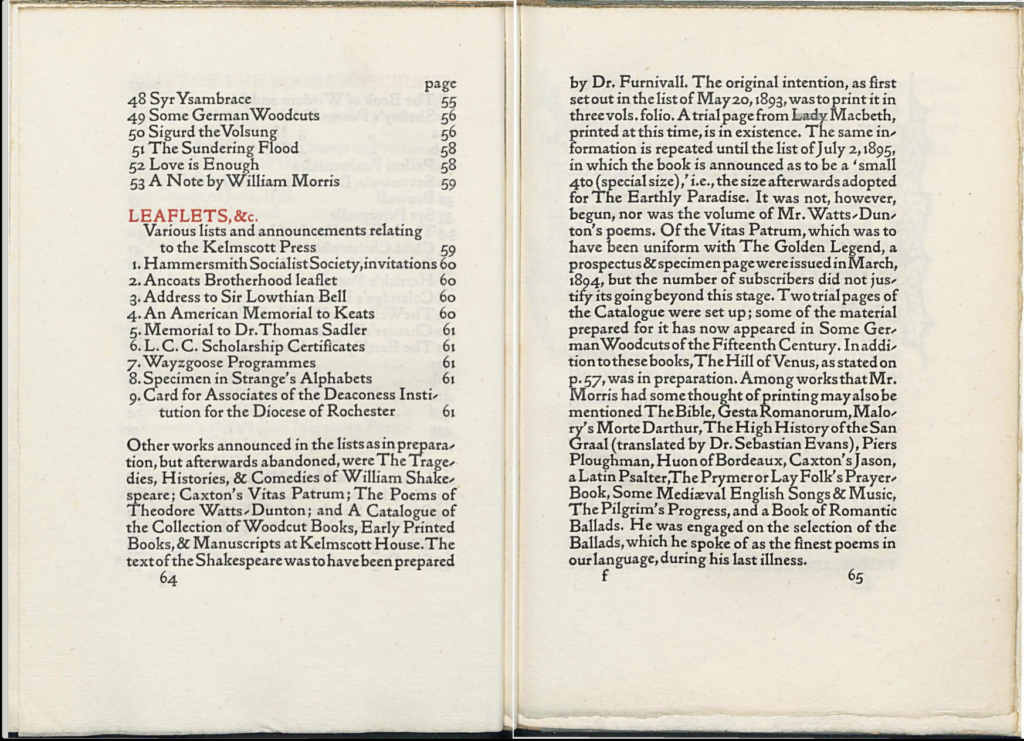 page
48 Syr Ysambrace 55
49 Some German Woodcuts 56
50 Sigurd the Volsung 56
51 The Sundering Flood 58
52 Love is Enough 58
53 A Note by William Morris 59
LEAFLETS, &c.
Various lists and announcements relating
to the Kelmscott Press 59
1. Hammersmith Socialist Society, invitations 60
2. Ancoats Brotherhood leaflet 60
3. Address to Sir Lowthian Bell 60
4. An American Memorial to Keats 60
5. Memorial to Dr. Thomas Sadler 61
6. L. C. C. Scholarship Certificates 61
7. Wayzgoose Programmes 61
8. Specimen in Strange's Alphabets 61
9. Card for Associates of the Deaconess Insti-
tution for the Diocese of Rochester 61
Other works announced in the lists as in prepara-
tion, but afterwards abandoned, were The Trage-
dies, Histories, & Comedies of William Shake-
speare; Caxton's Vitas Patrum; The Poems of
Theodore Watts-Dunton; and A Catalogue of
the Collection of Woodcut Books, Early Printed
Books, & Manuscripts at Kelmscott House. The
text of the Shakespeare was to have been prepared
64
by Dr. Furnivall. The original intention, as first
set out in the list of May 20, 1893, was to print it in
three vols. folio. A trial page from Lady Macbeth,
printed at this time, is in existence. The same in-
formation is repeated until the list of July 2, 1895,
in which the book is announced as to be a 'small
4to (special size),' i.e., the size afterwards adopted
for The Earthly Paradise. It was not, however,
begun, nor was the volume of Mr. Watts-Dun-
ton's poems. Of the Vitas Patrum, which was to
have been uniform with The Golden Legend, a
prospectus & specimen page were issued in March,
1894, but the number of subscribers did not jus-
tify its going beyond this stage. Two trial pages of
the Catalogue were set up; some of the material
prepared for it has now appeared in Some Ger-
man Woodcuts of the Fifteenth Century. In addi-
tion to these books, The Hill of Venus, as stated on
p. 57, was in preparation. Among works that Mr.
Morris had some thought of printing may also be
mentioned The Bible, Gesta Romanorum, Malo-
ry's Morte Darthur, The High History of the San
Graal (translated by Dr. Sebastian Evans), Piers
Ploughman, Huon of Bordeaux, Caxton's Jason,
a Latin Psalter, The Prymer or Lay Folk's Prayer-
Book, Some Mediæval English Songs & Music,
The Pilgrim's Progress, and a Book of Romantic
Ballads. He was engaged on the selection of the
Ballads, which he spoke of as the finest poems in
our language, during his last illness.
f 65